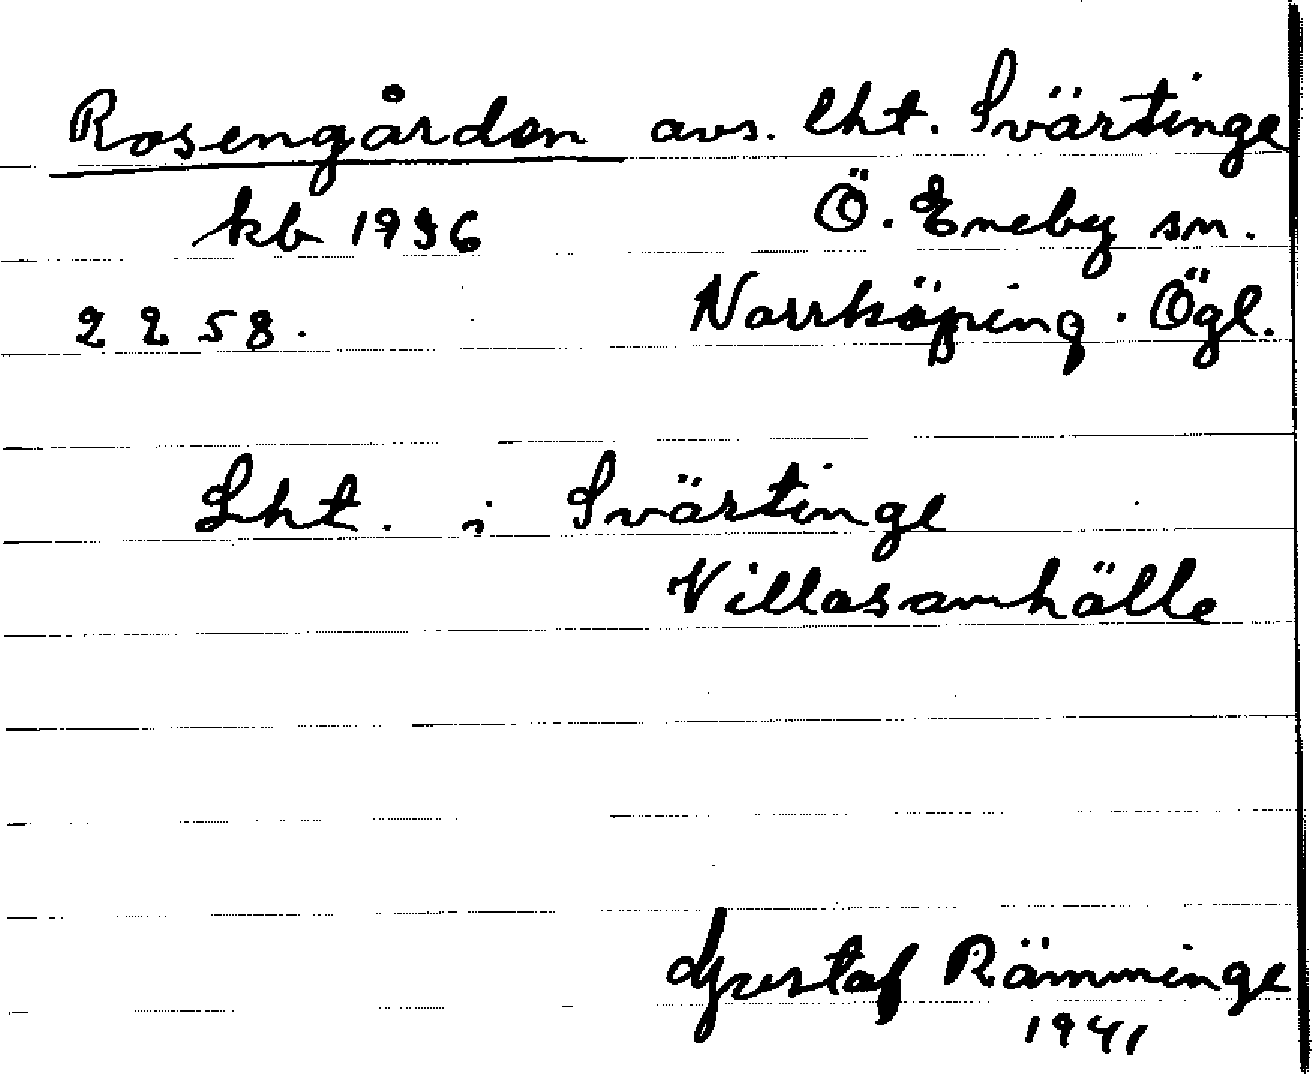 Rosengården avs. lht. Svärtinge
kb 1936 Ö. Eneby sn.
2 2 58. Norrköping. Ögl.
Lht. i Svärtinge
Villasamhälle
Gustaf Rämminge
1941